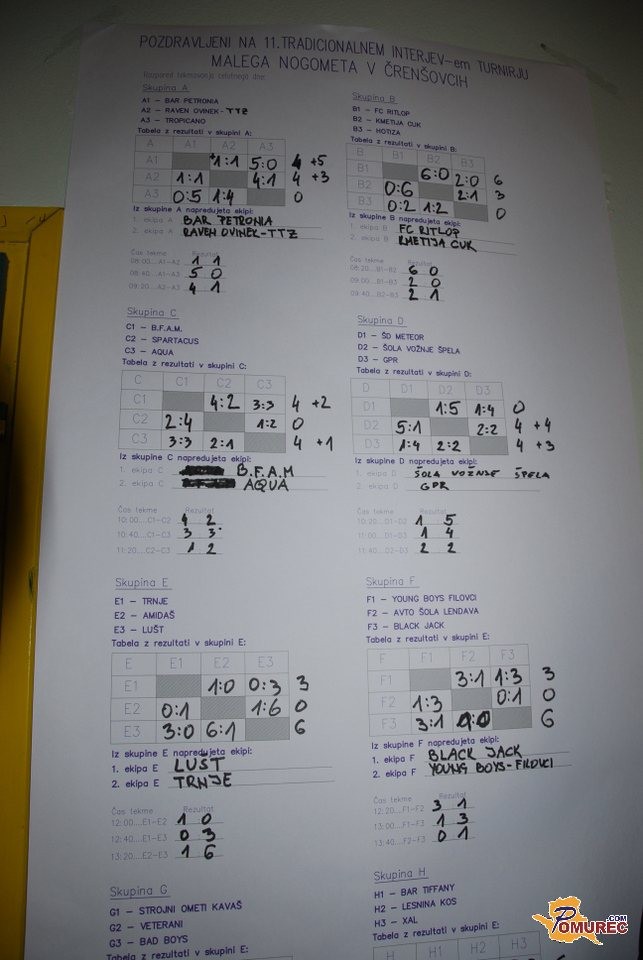 POZDRAVLJENI NA 11.TRADICIONALNEM INTERJEV-em TURNIRJU
MALEGA NOGOMETA V ČRENŠOVCIH
Razpored tekmovanja celotnega dne:
Skupina A
A1 - BAR PETRONIA
A2 - RAVEN OVINEK-TTZ
A3 - TROPICANO
Tabela z rezultati v skupini A:
A A1 A2 A3
A1 1:1 5:0 4 +5
A2 1:1 4:1 4 +3
A3 0:5 1:4 0
Iz skupine A napredujeta ekipi:
1. ekipa A BAR PETRONIA
2. ekipa A RAVEN OVINEK-TTZ
Čas tekme Rezultat
08:00...A1-A2 1 1
08:40...A1-A3 5 0
09:20...A2-A3 4 1
Skupina B
B1 - FC RITLOP
B2 - KMETIJA CUK
B3 - HOTIZA
Tabela z rezultati v skupini B:
B B1 B2 B3
B1 6:0 2:0 6
B2 0:6 2:1 3
B3 0:2 1:2 0
Iz skupine B napredujeta ekipi:
1. ekipa B FC RITLOP
2. ekipa B KMETIJA CUK
Čas tekme Rezultat
08:20...B1-B2 6 0
09:00...B1-B3 2 0
09:40...B2-B3 2 1
Skupina C
C1 - B.F.A.M.
C2 - SPARTACUS
C3 - AQUA
Tabela z rezultati v skupini C:
C C1 C2 C3
C1 4:2 3:3 4 +2
C2 2:4 1:2 0
C3 3:3 2:1 4 +1
Iz skupine C napredujeta ekipi:
1. ekipa C B.F.A.M
2. ekipa C AQUA
Čas tekme Rezultat
10:00...C1-C2 4 2
10:40...C1-C3 3 3
11:20...C2-C3 1 2
Skupina D
D1 - ŠD METEOR
D2 - ŠOLA VOŽNJE ŠPELA
D3 - GPR
Tabela z rezultati v skupini D:
D D1 D2 D3
D1 1:5 1:4 0
D2 5:1 2:2 4 +4
D3 1:4 2:2 4 +3
Iz skupine D napredujeta ekipi:
1. ekipa D ŠOLA VOŽNJE ŠPELA
2. ekipa D GPR
Čas tekme Rezultat
10:20...D1-D2 1 5
11:00...D1-D3 1 4
11:40...D2-D3 2 2
Skupina E
E1 - TRNJE
E2 - AMIDAŠ
E3 - LUŠT
Tabela z rezultati v skupini E:
E E1 E2 E3
E1 1:0 0:3 3
E2 0:1 1:6 0
E3 3:0 6:1 6
Iz skupine E napredujeta ekipi:
1. ekipa E LUŠT
2. ekipa E TRNJE
Čas tekme Rezultat
12:00...E1-E2 1 0
12:40...E1-E3 0 3
13:20...E2-E3 1 6
Skupina F
F1 - YOUNG BOYS FILOVCI
F2 - AVTO ŠOLA LENDAVA
F3 - BLACK JACK
Tabela z rezultati v skupini E:
F F1 F2 F3
F1 3:1 1:3 3
F2 1:3 0:1 0
F3 3:1 1:0 6
Iz skupine F napredujeta ekipi:
1. ekipa F BLACK JACK
2. ekipa F YOUNG BOYS-FILOVCI
Čas tekme Rezultat
12:20...F1-F2 3 1
13:00...F1-F3 1 3
13:40...F2-F3 0 1
Skupina G
G1 - STROJNI OMETI KAVAŠ
G2 - VETERANI
G3 - BAD BOYS
Tabela z rezultati v skupini E:
Skupina H
H1 - BAR TIFFANY
H2 - LESNINA KOS
H3 - XAL
Tabela z rezultati v skupini E:
H H1 H2 H3
POMUREC.COM